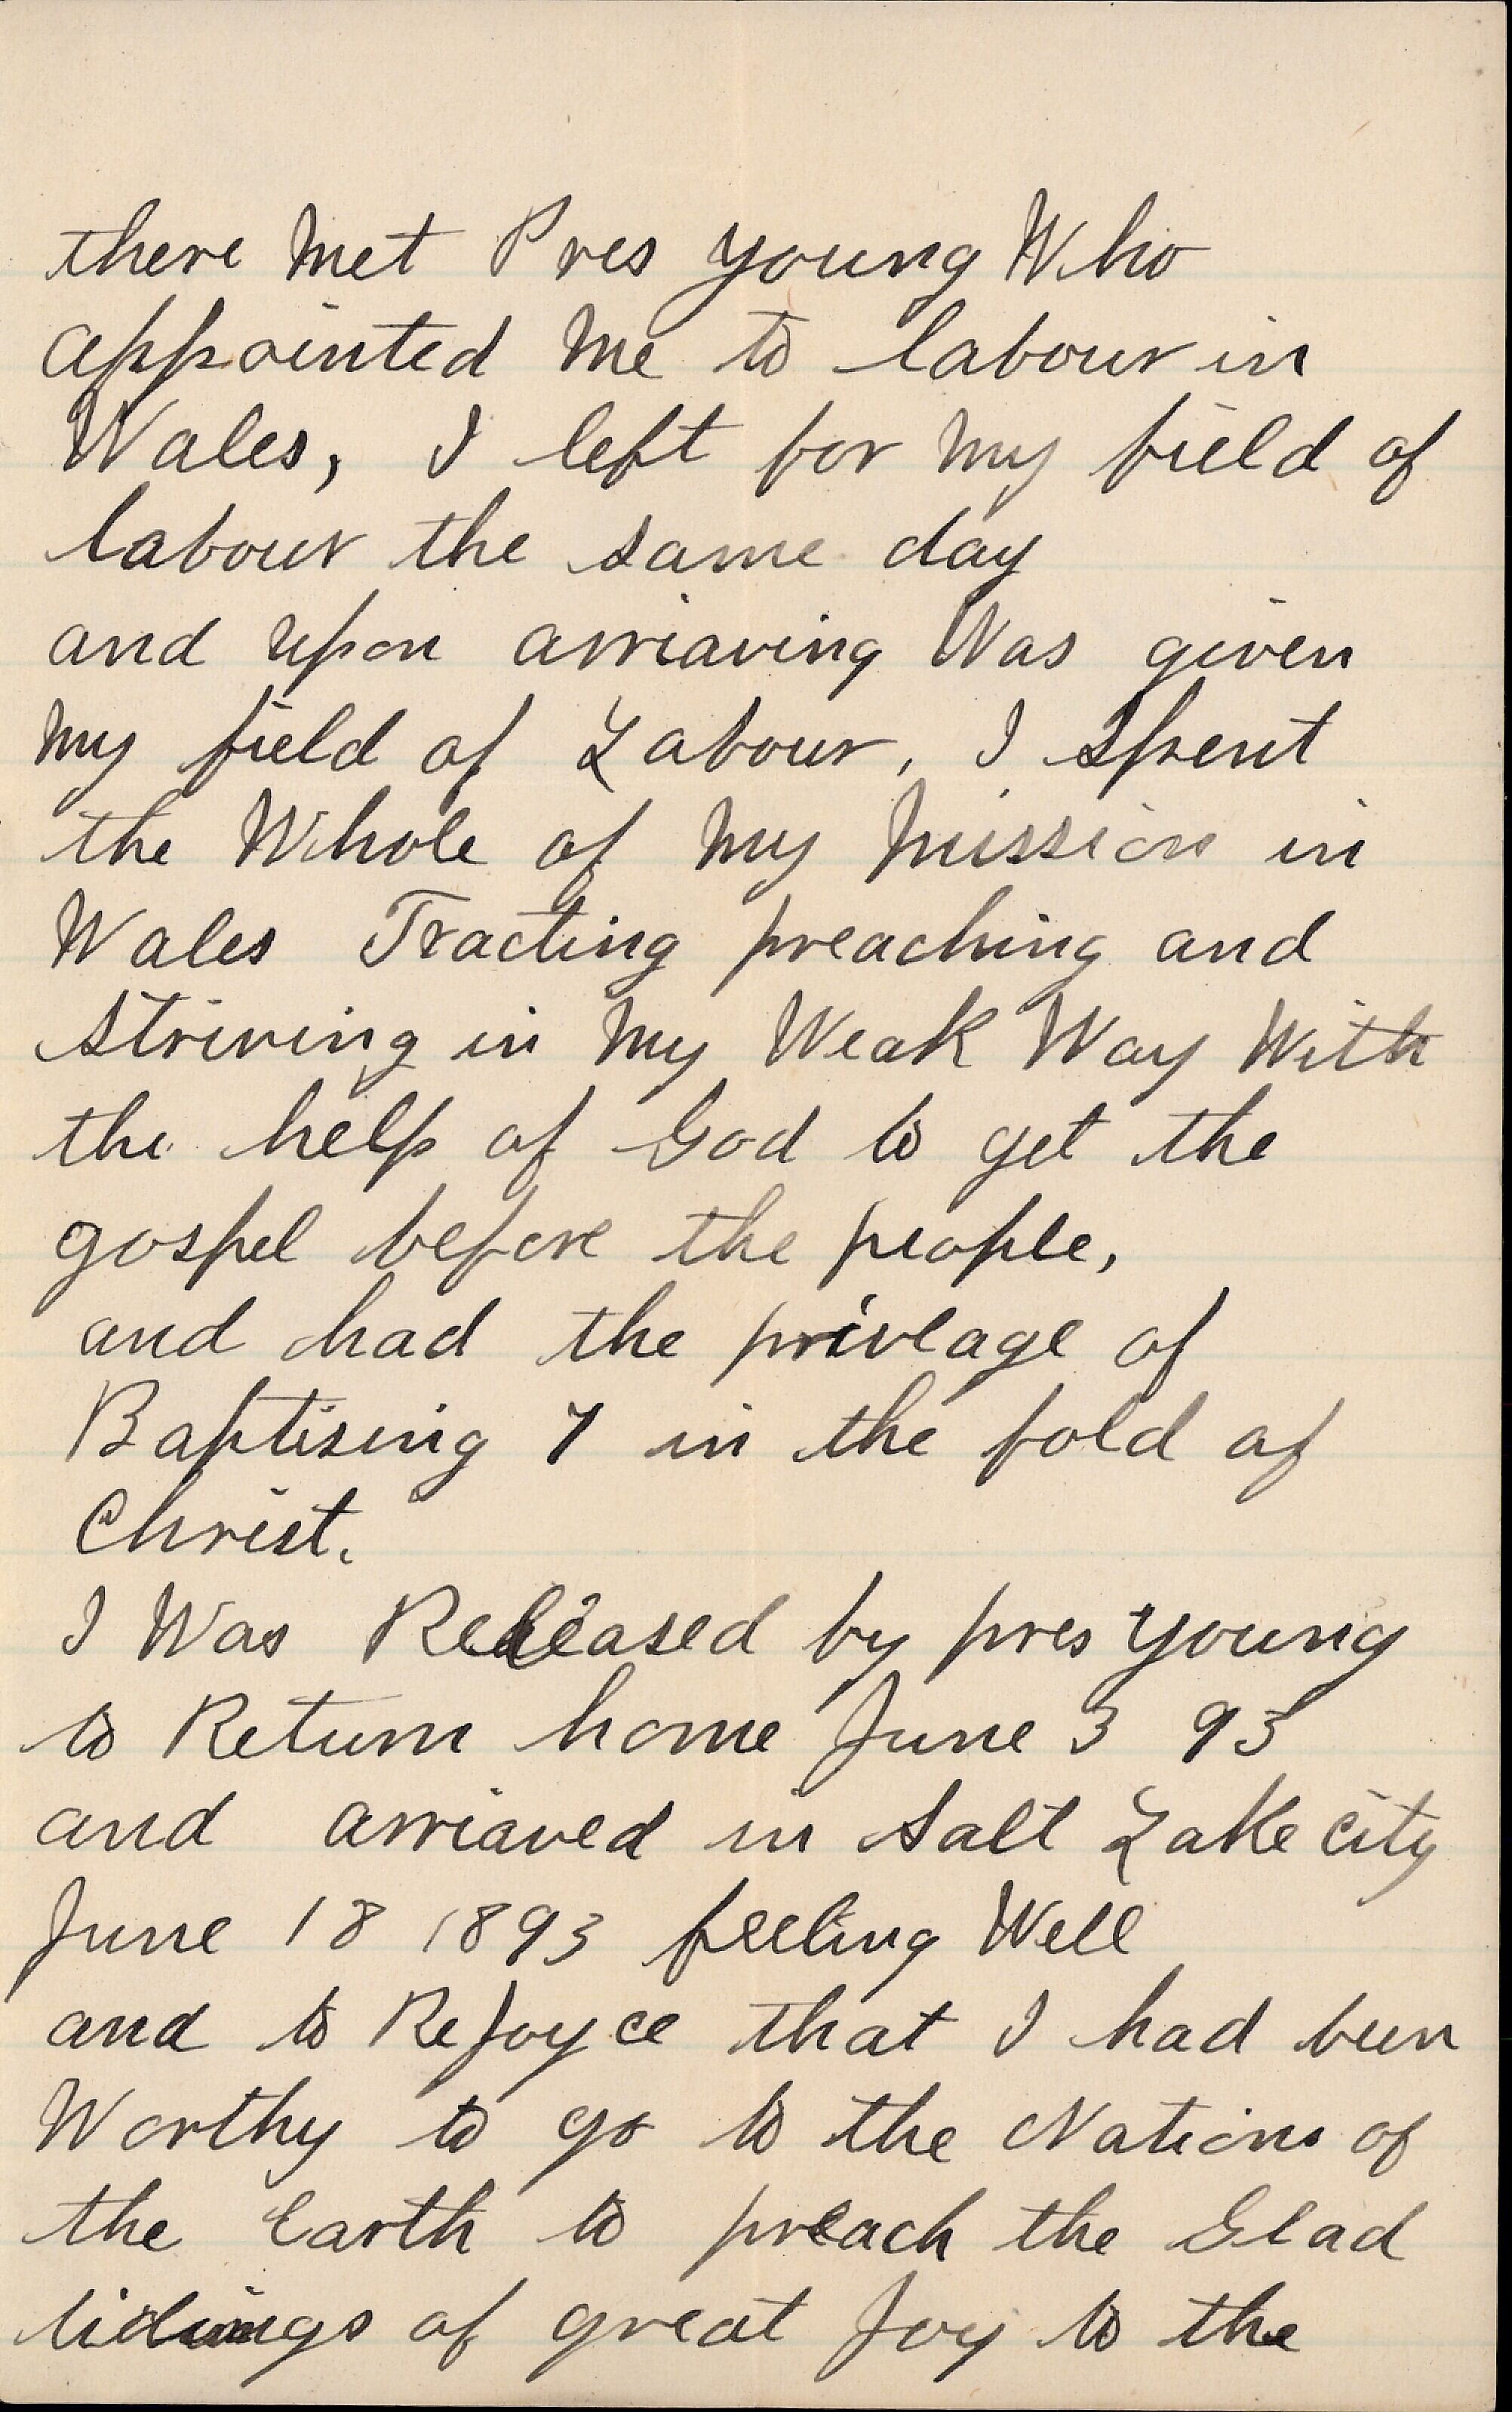 there met Pres young Who
appointed me to labour in
Wales, I left for my field of
labour the same day
and upon arriaving Was given
my field of Labour, I Spent
the Whole of my mission in
Wales Tracting preaching and
striving in my Weak Way With
the help of God to get the
gospel before the people,
and had the priveage of
Baptising 7 in the fold of
Christ.
I Was Released by pres young
to Return home June 3 93
and arriaved in Salt Lake city
June 18 1893 feeling Well
and to ReJoyce that I had been
Worthy to go to the Nations of
the Earth to preach the Glad
tidings of great Joy to the